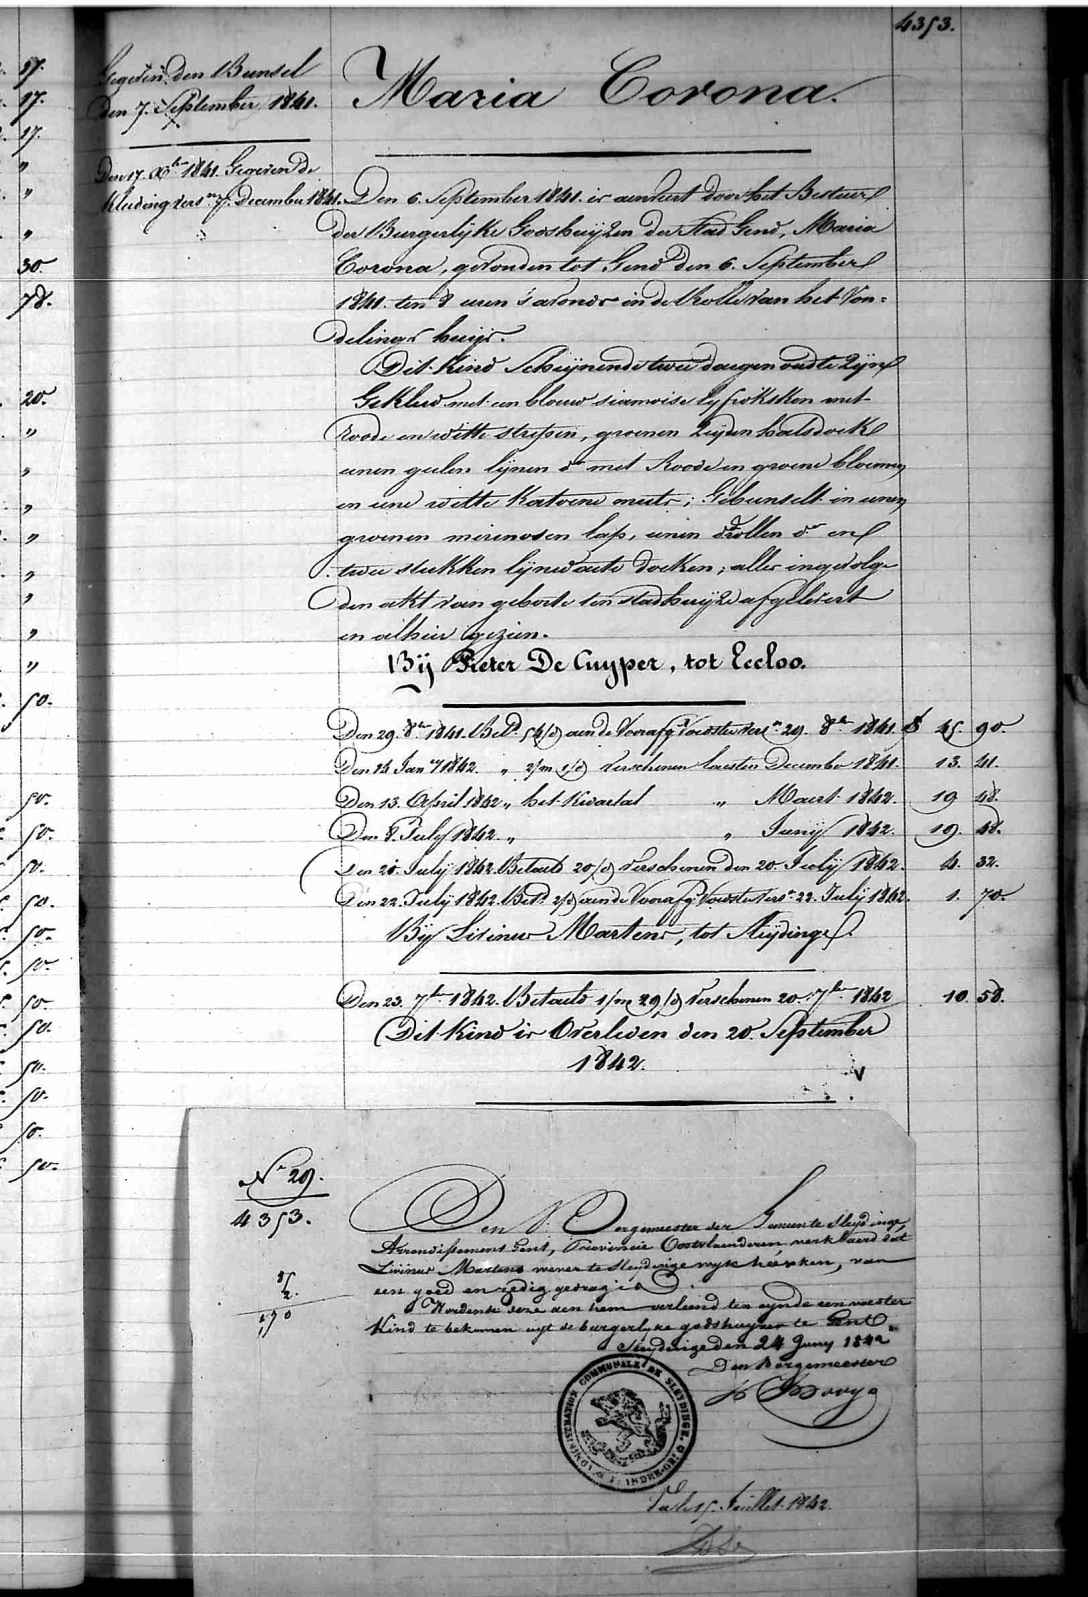 4353.
Gegeven den Bunsel
Den 7. September 1841.
Maria Corona.
Den 17. Xbr 1841. Gegeven de
kleeding vers.n 7. December 1841.
Den 6. September 1841. is aenveert door het Bestuer
der Burgerlijke Godshuijzen der Stad Gend, Maria
Corona, gevonden tot Gend den 6. September
1841. ten 8 uren 's avonds in de Rolle van het Von=
delings huijs.
Dit Kind Scheijnende twee daegen oud te Zijn
Gekleed met een blauw siamoise lijfrokske met
roode en witte strepen, groenen zijden halsdoek
eenen geelen lijnen do met Roode en groene bloemen
en eene witte Katoene muts; Gebunselt in eenen
groenen merinosen lap, eenen wollen do en
twee stukken lijnwaete doeken; alles ingevolge
den akt van geboorte ten stadhuijze afgelevert
en alhier gezien.
Bij Pieter De Cuyper, tot Eecloo.
Den 29. 8br 1841. Bet.d aen de Voorafg. Voedster vers.n 29. 8br 1841. 45. 90.
Den 14 Jan.y 1842. " 2/m 1/d verschenen laesten December 1841. 13. 41.
Den 13. April 1842 " het Kwartal " Maert 1842. 19 48.
Den 8. July 1842 " " Junij 1842. 19. 48.
Den 20. July 1842. Betaeld 20/d Verschenen den 20. July 1842. 4. 32.
Den 22. July 1842. Bet.d 2/d aen de Voorafg. Voedster vers.n 22. July 1842. 1. 70.
Bij Livinus Martens, tot Sleijdinge.
Den 23. 7br 1842. Betaeld 1/m 29/d Verschenen 20. 7br 1842 10. 58.
Dit Kind is Overleden den 20. September
1842.
N.r 29.
4353.
Den Borgemeester der Gemeente Sleydinge,
Arrondissement Gent, Provincie Oostvlaenderen, verklaerd dat
Livinus Martens wever te Sleydinge wyk heirken, van
een goed en zedig gedrag is.
Wordende deze aen hem verleend ten eynde een voester
Kind te bekomen uyt de burgerlyke godshuyzen te Gent.
Sleydinge den 24 Juny 1842
Den Borgemeester
ADMINISTRATION COMMUNALE DE SLEYDINGE
Vu le 15. Juillet 1842.